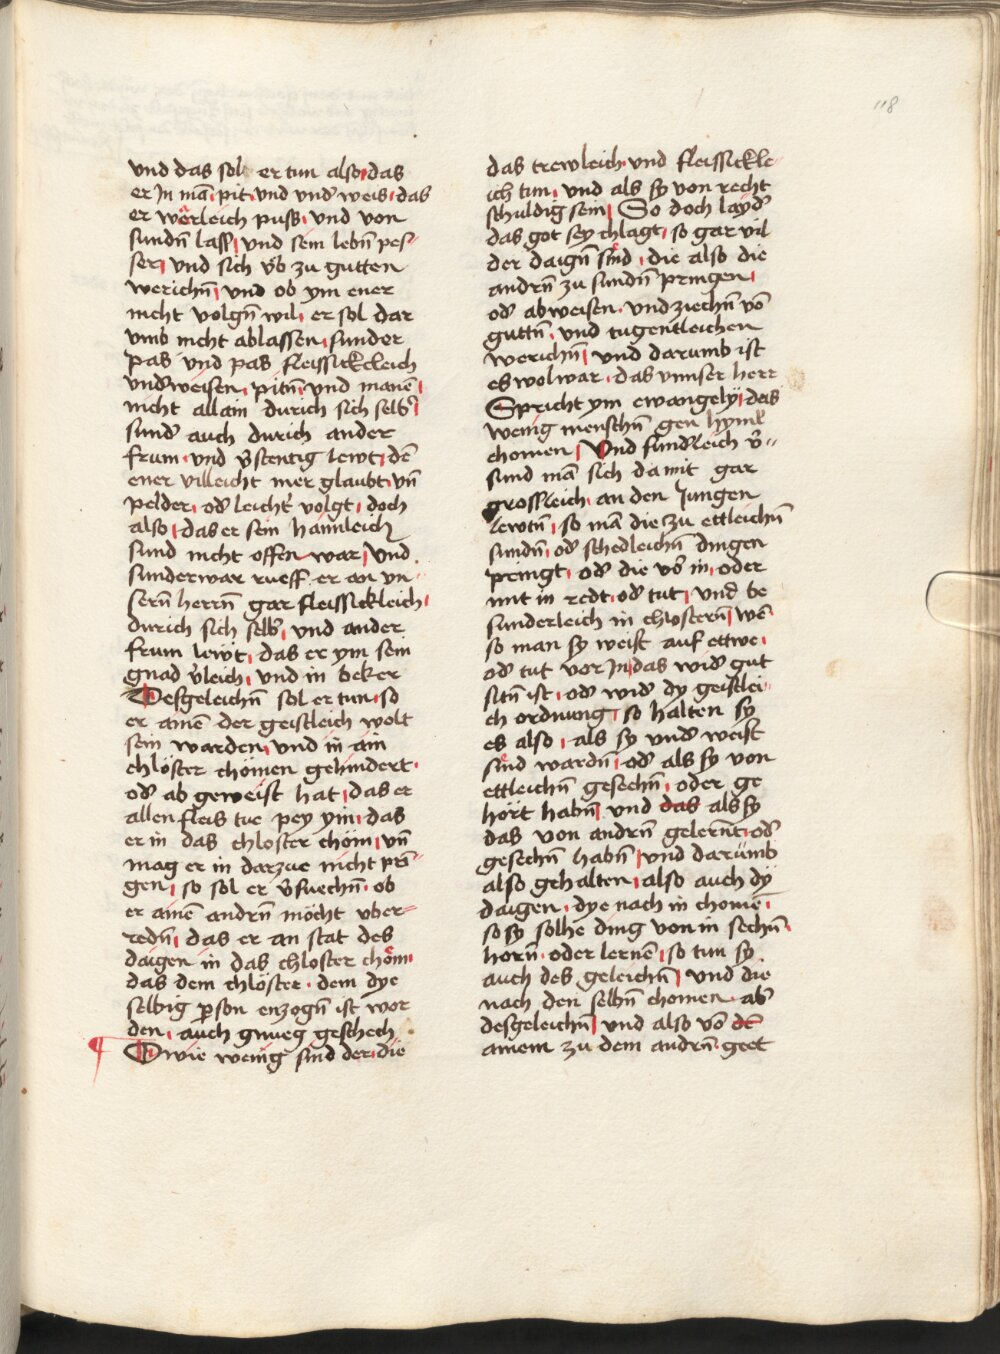 118
und das sol er tun also das
er In mā pit und und̕ weis das
er wͤrleich puſſ und von
sundn̄ lass und sein lebn̄ pes-
ser und sich v̈b zu gutten
werichn̄ und ob ym ener
nicht volgn̄ wil er sol dar
umb nicht ablassen sunder
pas und pas fleissickleich
und̕weisen pitn̄ und manē
nicht allain durich sich selb̕
sund̕ auch durich ander
frum und v̕stentig lewt dē
ener villeicht mer glaubt vn̄
pelder od̕ leicht̕ volgt doch
also das er sein haimleich
sund nicht offen war Und
sunderwar rueff er an vn-
sern̄ herrn̄ gar fleissickleich
durich sich selb̕ und ander
frum lewt das er ym sein
gnad v̕leich und in beker
Desgeleichn̄ sol er tun so
er ainē der geistleich wolt
sein warden und in ain
chloster chömen gehindert
od̕ ab geweist hat das er
allen fleis tue pey ym das
er in das chloster chöm vn̄
mag er in darzue nicht prī-
gen so sol er v̕suechn̄ ob
er ainē andrn̄ möcht vber-
redn̄ das er an stat des
daigen in das chloster chöm
das dem chlöster dem dye
selbig pson enzogn̄ ist wor
den auch gnueg geschech
O wie wenig sind der die
das trewleich und fleissickle-
ich tun und als sy von recht
schuldig sein So doch layd̕
das got sey chlagt so gar vil
der daign̄ sind die also die
andrn̄ zu sundn̄ pringen
od̕ abweisen und ziechn̄ vō
guttn̄ und tugentleichen
werichn̄ und darumb ist
es wol war das vnnser herr
Spricht ym ewangely das
wenig menschn̄ gen hyml̄
chomen Und sund̕leich v̕-
sund mā sich damit gar
grossleich an den Jungen
lewtn̄ so mā die zu ettleichn̄
sundn̄ od̕ schedleichn̄ dingen
pringt od̕ die vor̕ in oder
mit in redt od̕ tut und be
sunderleich in chlostern̄ wē
so man sy weist auf ettwe
od̕ tut vor In das wid̕ gut
sitn̄ ist od̕ wid̕ dy geistlei-
ch ordnung so halten sy
es also als sy und̕ weist
sind wardn̄ od̕ als sy von
ettleichn̄ gesechn̄ oder ge
hört habn̄ und das als sy
das von andrn̄ gelernt od̕
gesechn̄ habn̄ und darumb
also gehalten also auch dy
daigen dye nach in chomē
so sy solhe ding von in sechn̄
horn̄ oder lernē so tun sy
auch des geleichn̄ und die
nach den selbn̄ chomen ab̕
desgeleichn̄ und also vō de
ainem zu dem andrn̄ geet